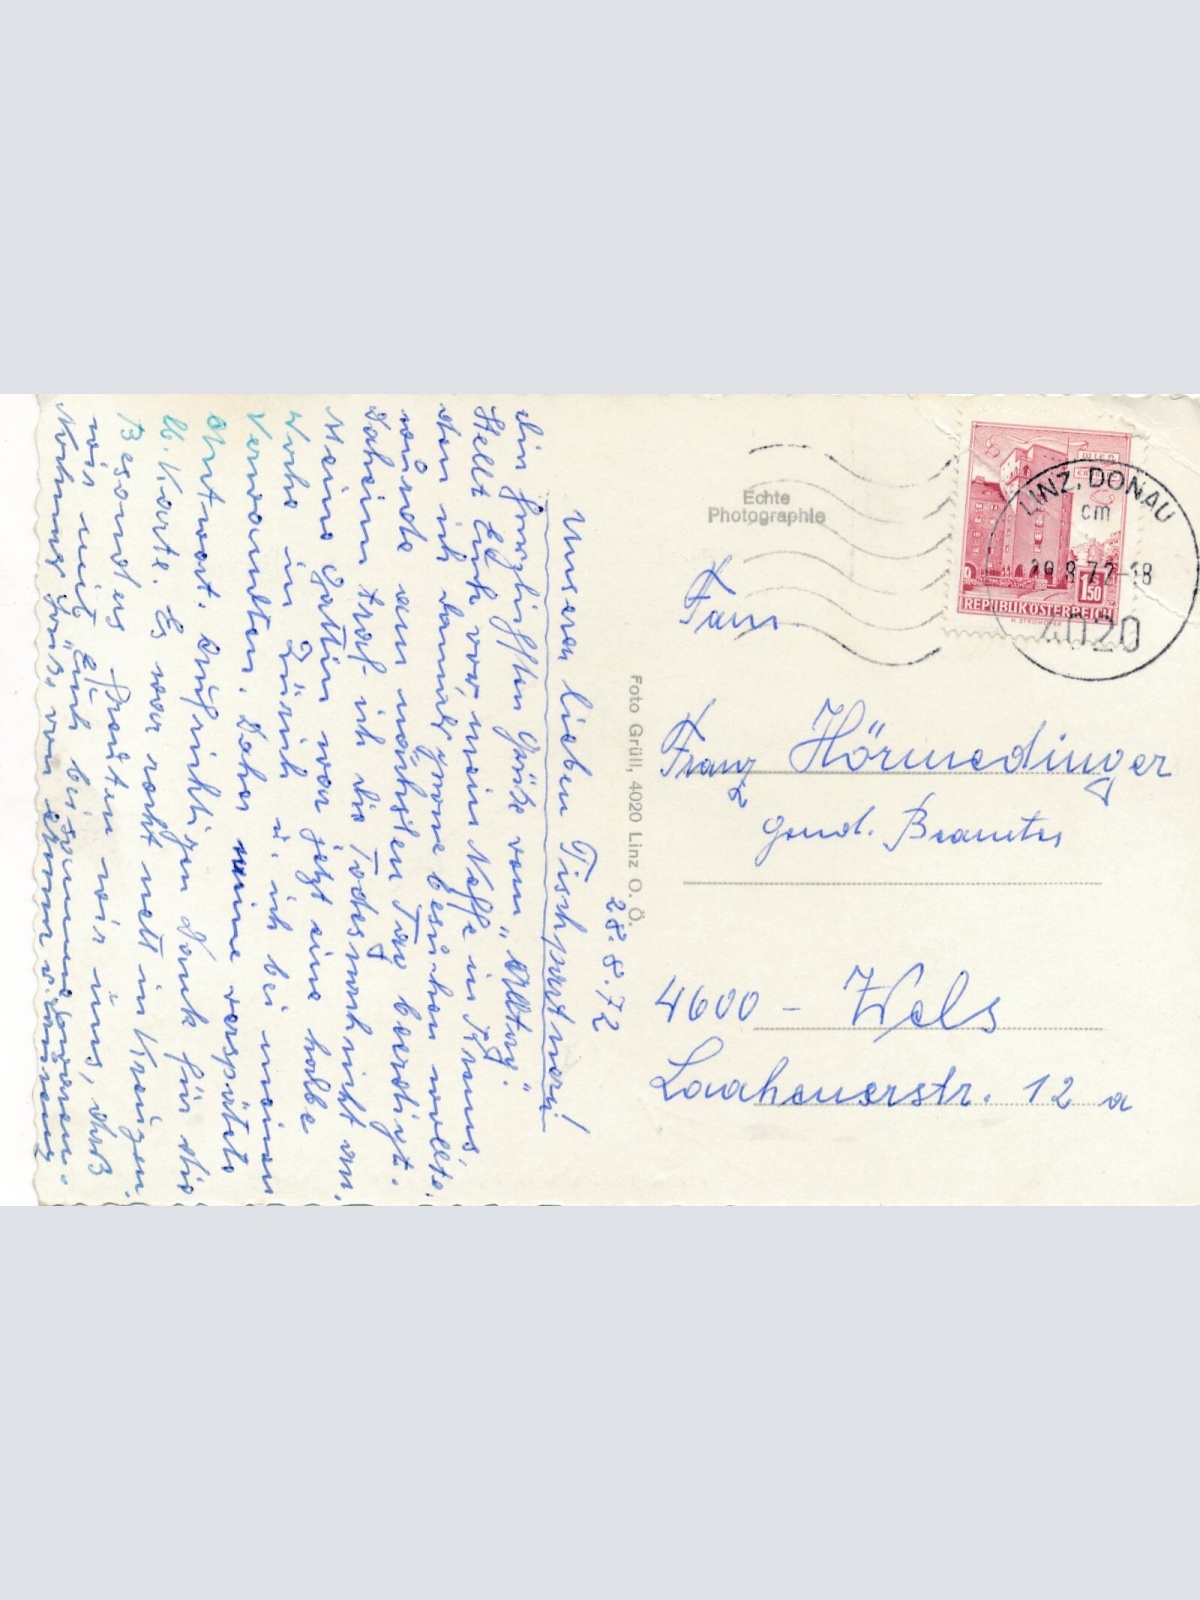 28.8.72
Unseren lieben Tischpartnern!
die herzlichsten Grüße vom „Alltag".
Stellt Euch vor, mein Neffe in Krems,
den ich damals gerne besuchen wollte,
wurde am nächsten Tag beerdigt.
Daheim traf ich die Todesnachricht an.
Meine Gattin war jetzt eine halbe
Woche in Zürich u. ich bei meinen
Verwandten. Daher meine verspätete
Antwort. Aufrichtigen Dank für die
lb. Karte. Es war recht nett in Kreuzen.
Besonders freuten wir uns, daß
wir mit Euch beisammen waren.
von
Echte
Photographie
Foto Grüll, 4020 Linz O. Ö.
WIEN
ERDBERG
1.50
REPUBLIK ÖSTERREICH
LINZ, DONAU
cm
29.8.72-18
4020
Fam
Franz Hörmedinger
gend. Beamter
4600 - Wels
Laahenerstr. 12 a